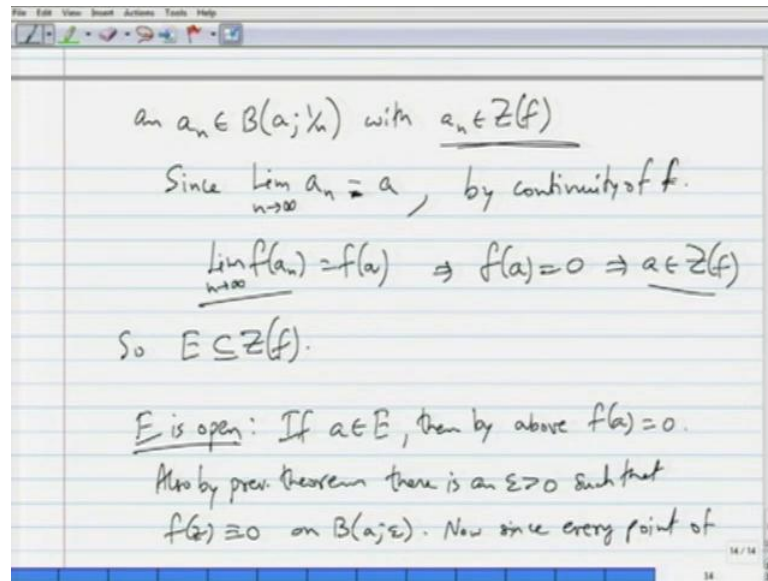 File Edit View Insert Actions Tools Help
an aₙ ∈ B(a; 1/n) with aₙ ∈ Z(f)
Since Lim aₙ = a, by continuity of f.
n→∞
Lim f(aₙ) = f(a) ⇒ f(a) = 0 ⇒ a ∈ Z(f)
n→∞
So E ⊆ Z(f).
E is open: If a ∈ E, then by above f(a) = 0.
Also by prev. theorem there is an ε>0 such that
f(z) ≡ 0 on B(a; ε). Now since every point of
14 / 14
14